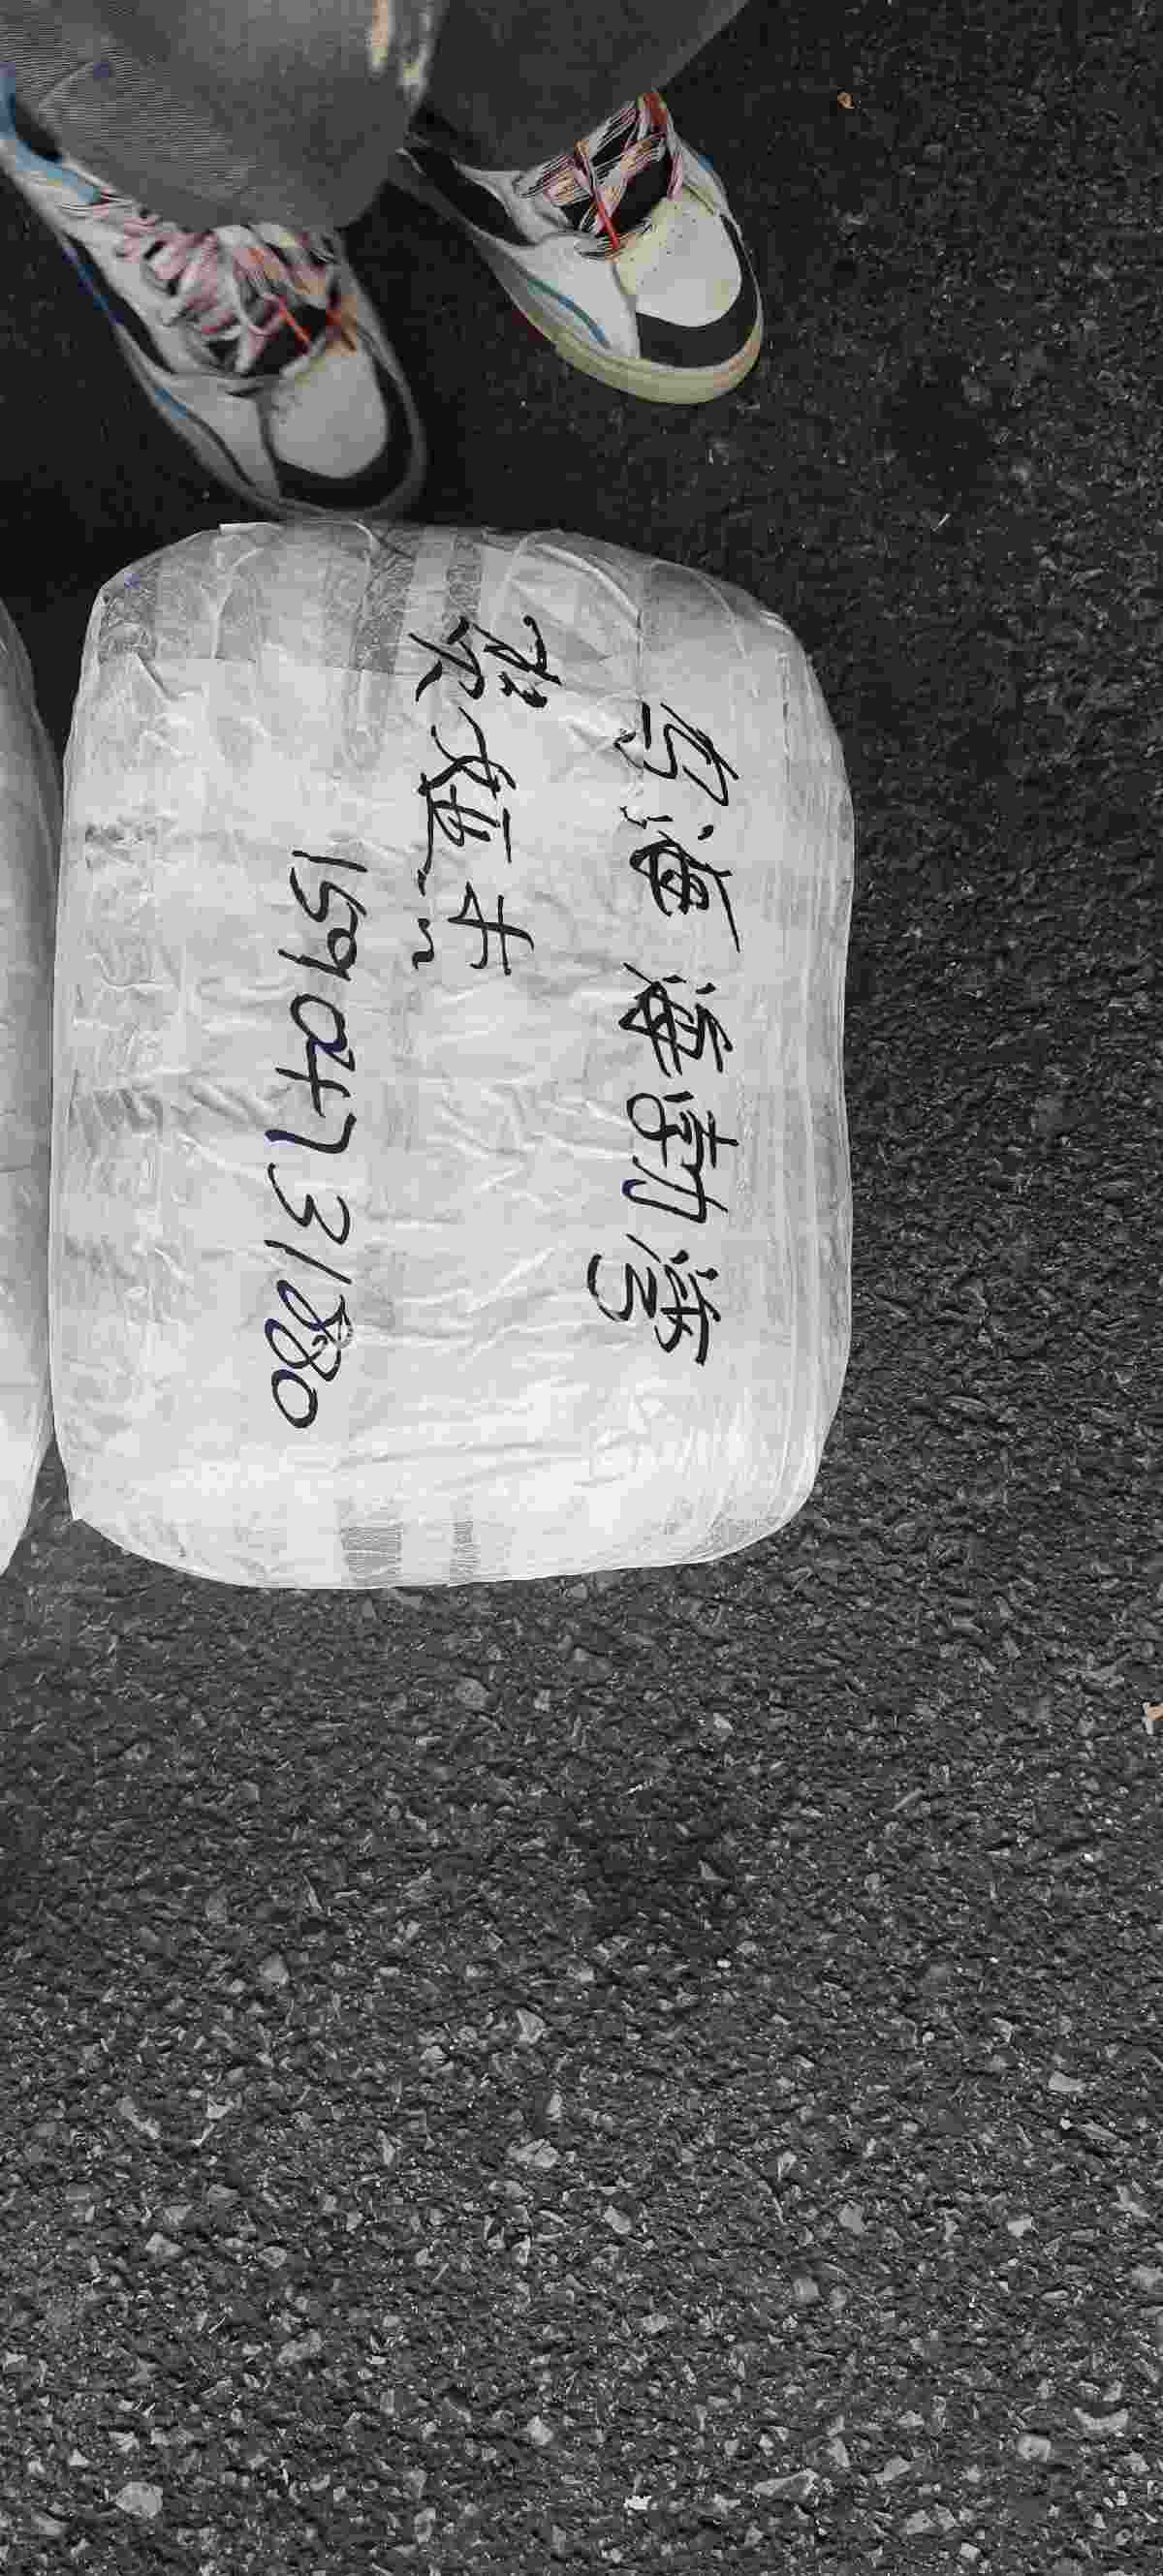 乌海海勃湾
梁娅杰
15904731880